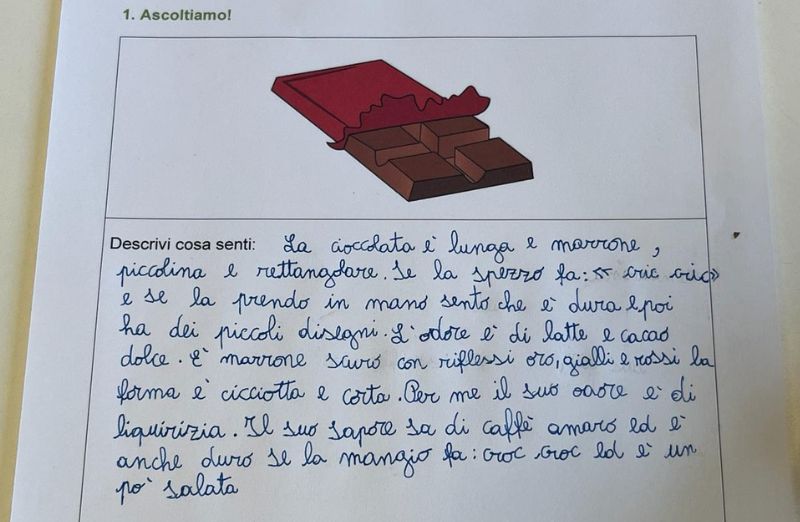 1. Ascoltiamo!
Descrivi cosa senti: La cioccolata è lunga e marrone,
piccolina e rettangolare. Se la spezzo fa: « cric cric»
e se la prendo in mano sento che è dura e poi
ha dei piccoli disegni. L'odore è di latte e cacao
dolce. È marrone scuro con riflessi oro, gialli e rossi la
forma è cicciotta e corta. Per me il suo odore è di
liquirizia. Il suo sapore sa di caffè amaro ed è
anche duro se la mangio fa: croc croc ed è un
po' salata